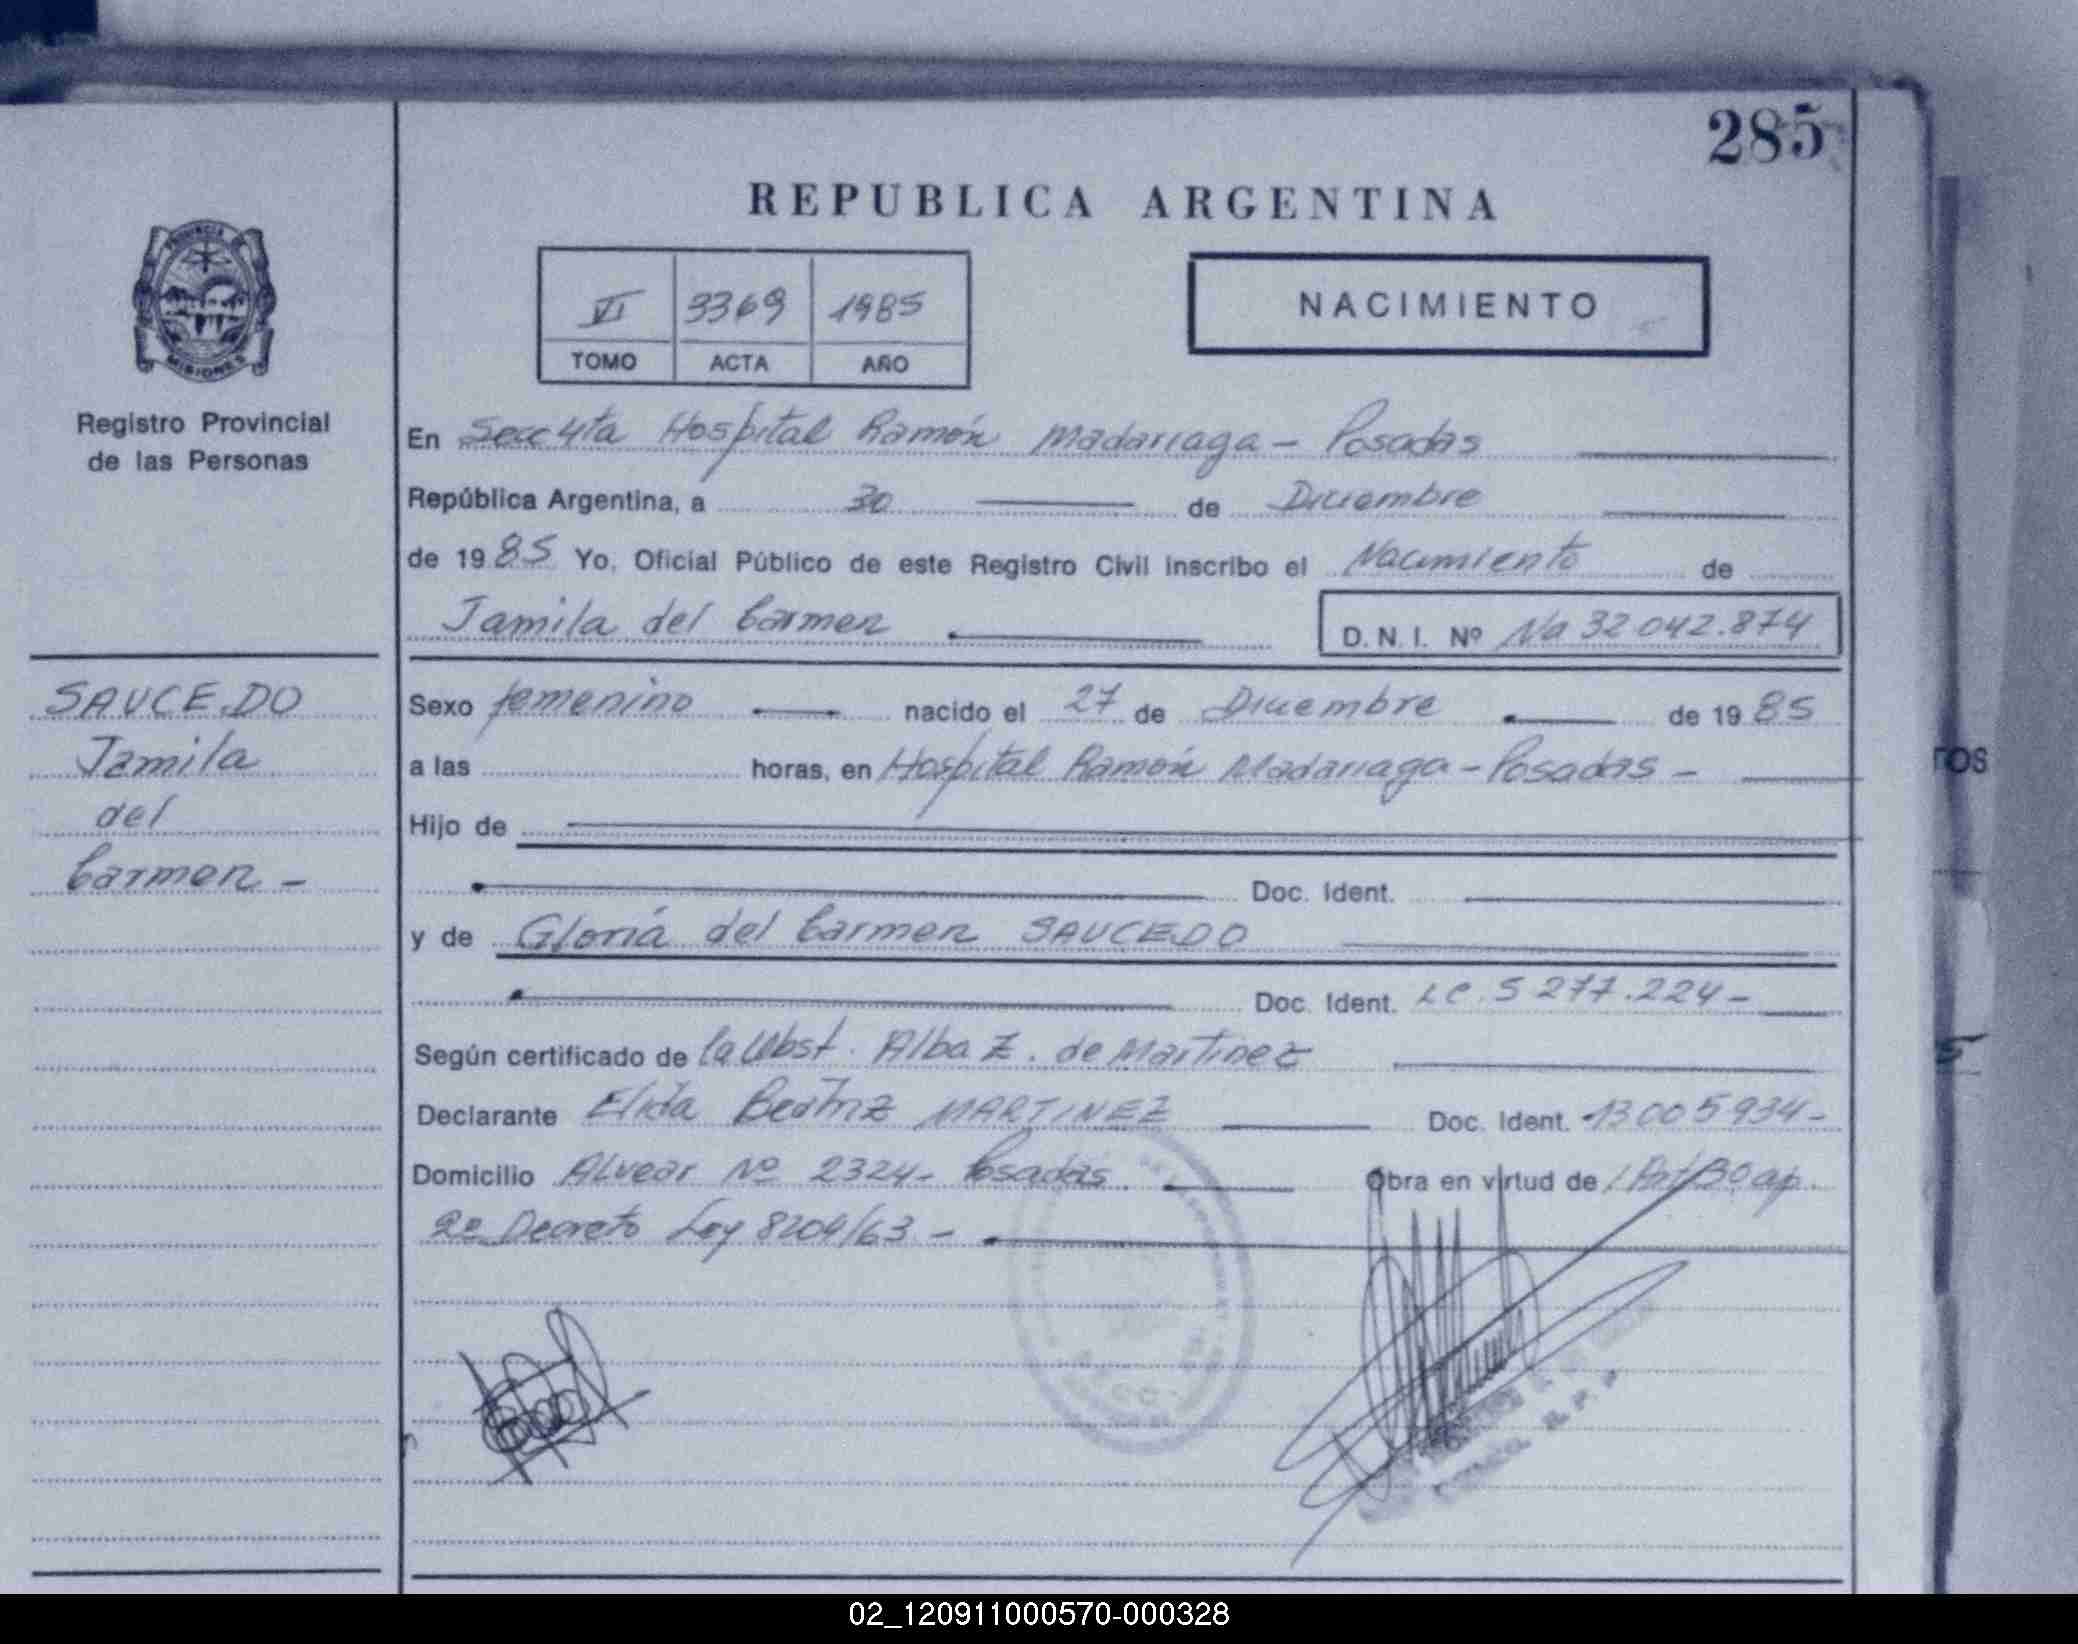 285
REPUBLICA ARGENTINA
VI 3369 1985
TOMO ACTA AÑO
NACIMIENTO
PROVINCIA DE
MISIONES
Registro Provincial
de las Personas
En Secc 4ta Hospital Ramón Madariaga - Posadas
República Argentina, a 30 de Diciembre
de 1985 Yo, Oficial Público de este Registro Civil inscribo el Nacimiento de
Jamila del Carmen D. N. I. Nº Na 32 042.874
SAUCEDO
Jamila
del
Carmen -
Sexo femenino nacido el 27 de Diciembre de 1985
a las horas, en Hospital Ramón Madariaga - Posadas -
Hijo de
Doc. Ident.
y de Gloria del Carmen SAUCEDO
Doc. Ident. LC. 5 277.224 -
Según certificado de la Obst. Alba Z. de Martinez
Declarante Elida Beatriz MARTINEZ Doc. Ident. 13 005934 -
Domicilio Alvear Nº 2324 - Posadas Obra en virtud de Art 30 ap.
2º Decreto Ley 8204/63 -
TOS
5
02_120911000570-000328